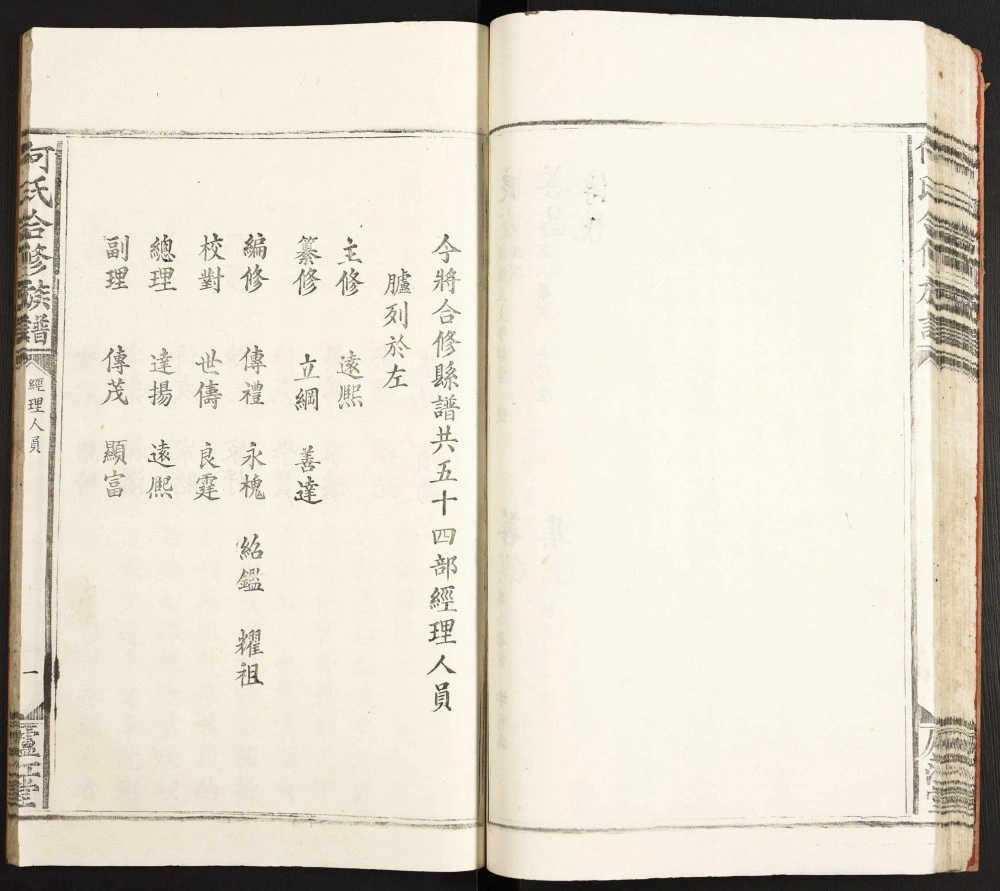 今將合修縣譜共五十四部經理人員
臚列於左
主修 遠熙
纂修 立綱 善達
編修 傳禮 永槐 紹鑑 耀祖
校對 世儔 良霆
總理 達揚 遠熙
副理 傳茂 顯富
何氏合修族譜 經理人員 一 廬江堂